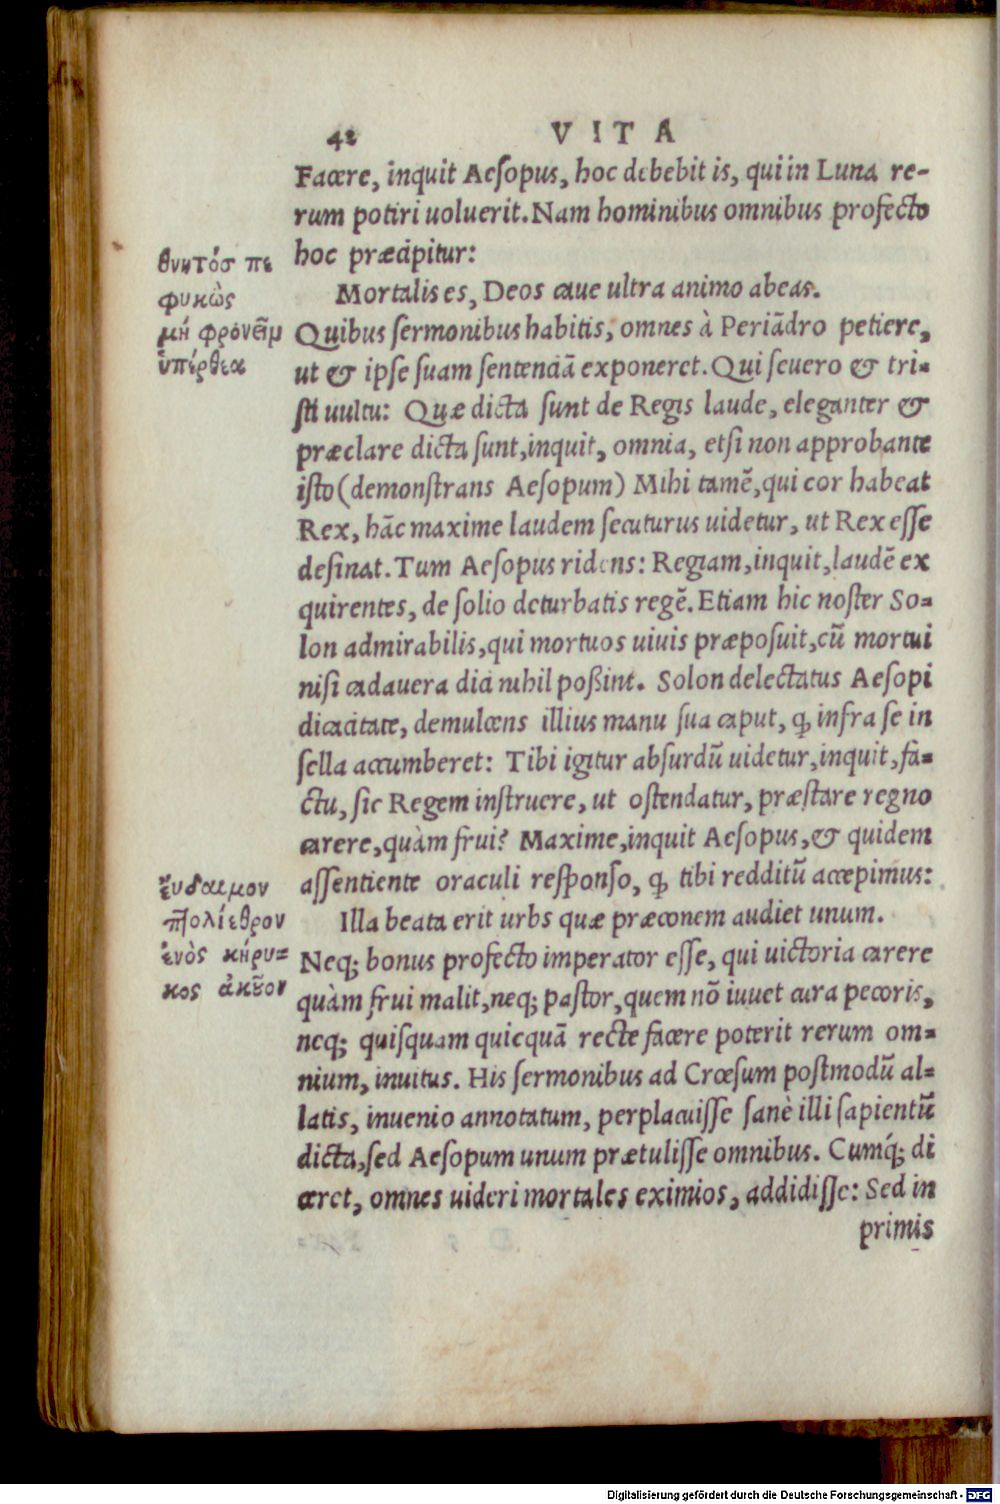 42 VITA
Facere, inquit Aesopus, hoc debebit is, qui in Luna re-
rum potiri uoluerit. Nam hominibus omnibus profecto
hoc præcipitur:
Mortalis es, Deos caue ultra animo abeas.
Quibus sermonibus habitis, omnes à Periãdro petiere,
ut & ipse suam sentenciã exponeret. Qui seuero & tri-
sti uultu: Quæ dicta sunt de Regis laude, eleganter &
præclare dicta sunt, inquit, omnia, etsi non approbante
isto (demonstrans Aesopum) Mihi tamẽ, qui cor habeat
Rex, hãc maxime laudem secuturus uidetur, ut Rex esse
desinat. Tum Aesopus ridens: Regiam, inquit, laudẽ ex
quirentes, de solio deturbatis regẽ. Etiam hic noster So-
lon admirabilis, qui mortuos uiuis præposuit, cũ mortui
nisi cadauera dici nihil poßint. Solon delectatus Aesopi
dicacitate, demulcens illius manu sua caput, ꝙ infra se in
sella accumberet: Tibi igitur absurdũ uidetur, inquit, fa-
ctu, sic Regem instruere, ut ostendatur, præstare regno
carere, quàm frui? Maxime, inquit Aesopus, & quidem
assentiente oraculi responso, ꝙ tibi redditũ accepimus:
Illa beata erit urbs quæ præconem audiet unum.
Neq; bonus profecto imperator esse, qui uictoria carere
quàm frui malit, neq; pastor, quem nõ iuuet cura pecoris,
neq; quisquam quicquã recte facere poterit rerum om-
nium, inuitus. His sermonibus ad Crœsum postmodũ al-
latis, inuenio annotatum, perplacuisse sanè illi sapientũ
dicta, sed Aesopum unum prætulisse omnibus. Cumq́; di
ceret, omnes uideri mortales eximios, addidisse: Sed in
primis
θνητόσ πε
φυκὼς
μή φρόνει̃μ
ὑπέρθεα
ἔυδαιμον
πτολίεθρον
ἑνὸς κήρυ-
κος ἀκȣ̃ον
Digitalisierung gefördert durch die Deutsche Forschungsgemeinschaft - DFG